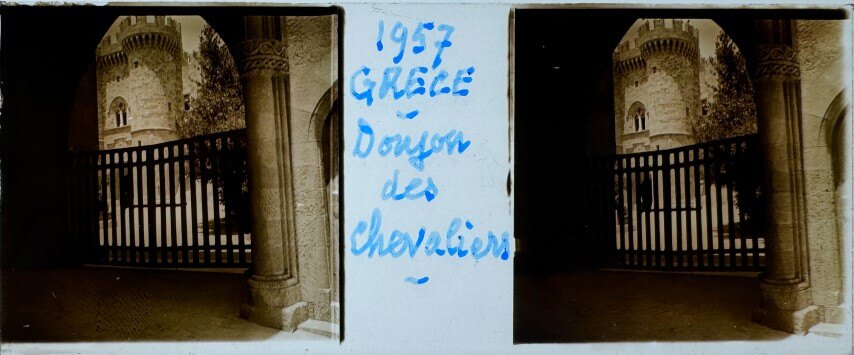 1957
GRECE
Donjon
des
Chevaliers